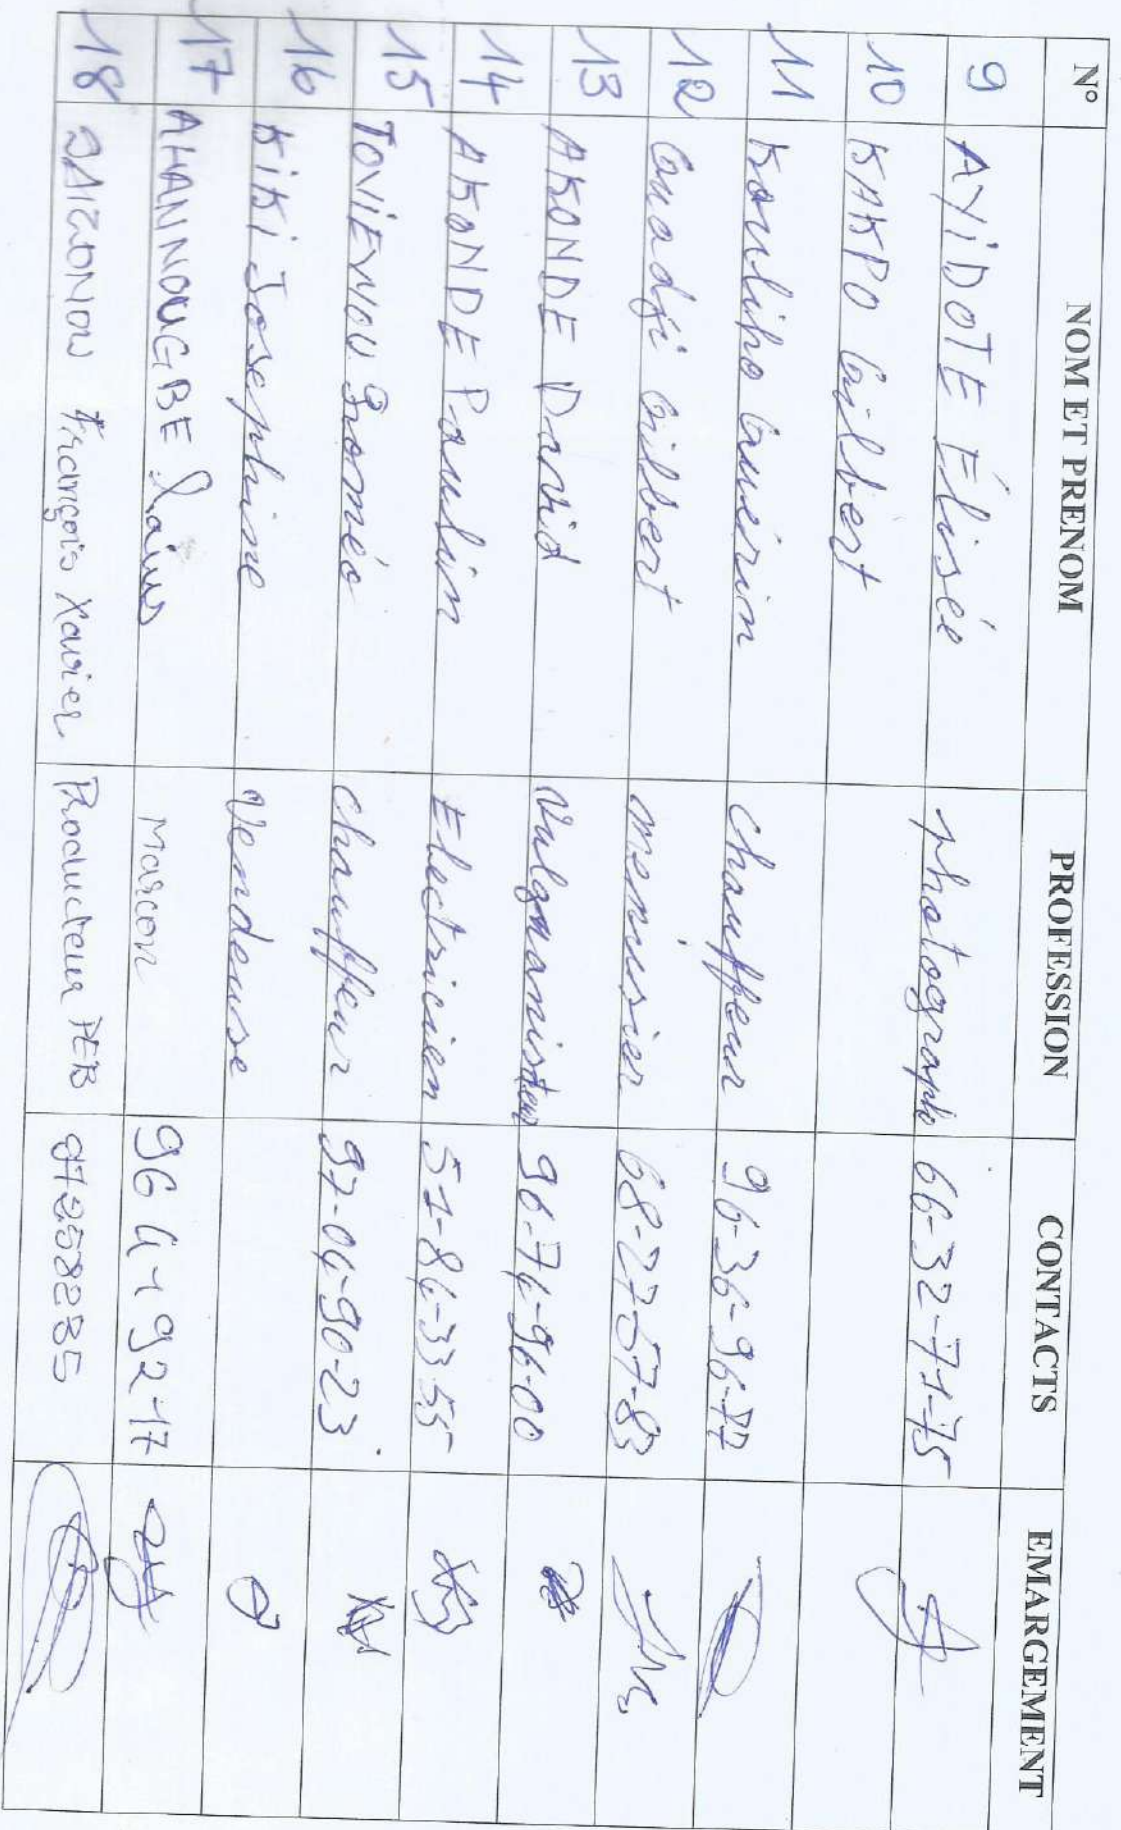 N° NOM ET PRENOM PROFESSION CONTACTS EMARGEMENT
9 AYiDOTE Élisée photographe 66-32-71-75
10 KAKPO Gilbert
11 Kouliho Guérin chauffeur 96-36-96-77
12 Gnadji Gilbert menusier 68-27-57-83
13 AKONDE David Vulganisteur 96-74-96-00
14 AKONDE Paulin Electricien 51-84-33 55
15 TOVIENOU Roméo chauffeur 97-04-90-23
16 KiKi Josephine Vendeuse
17 AHANNOUGBE Macon 96 41 92-17
18 François Xavier Producteur